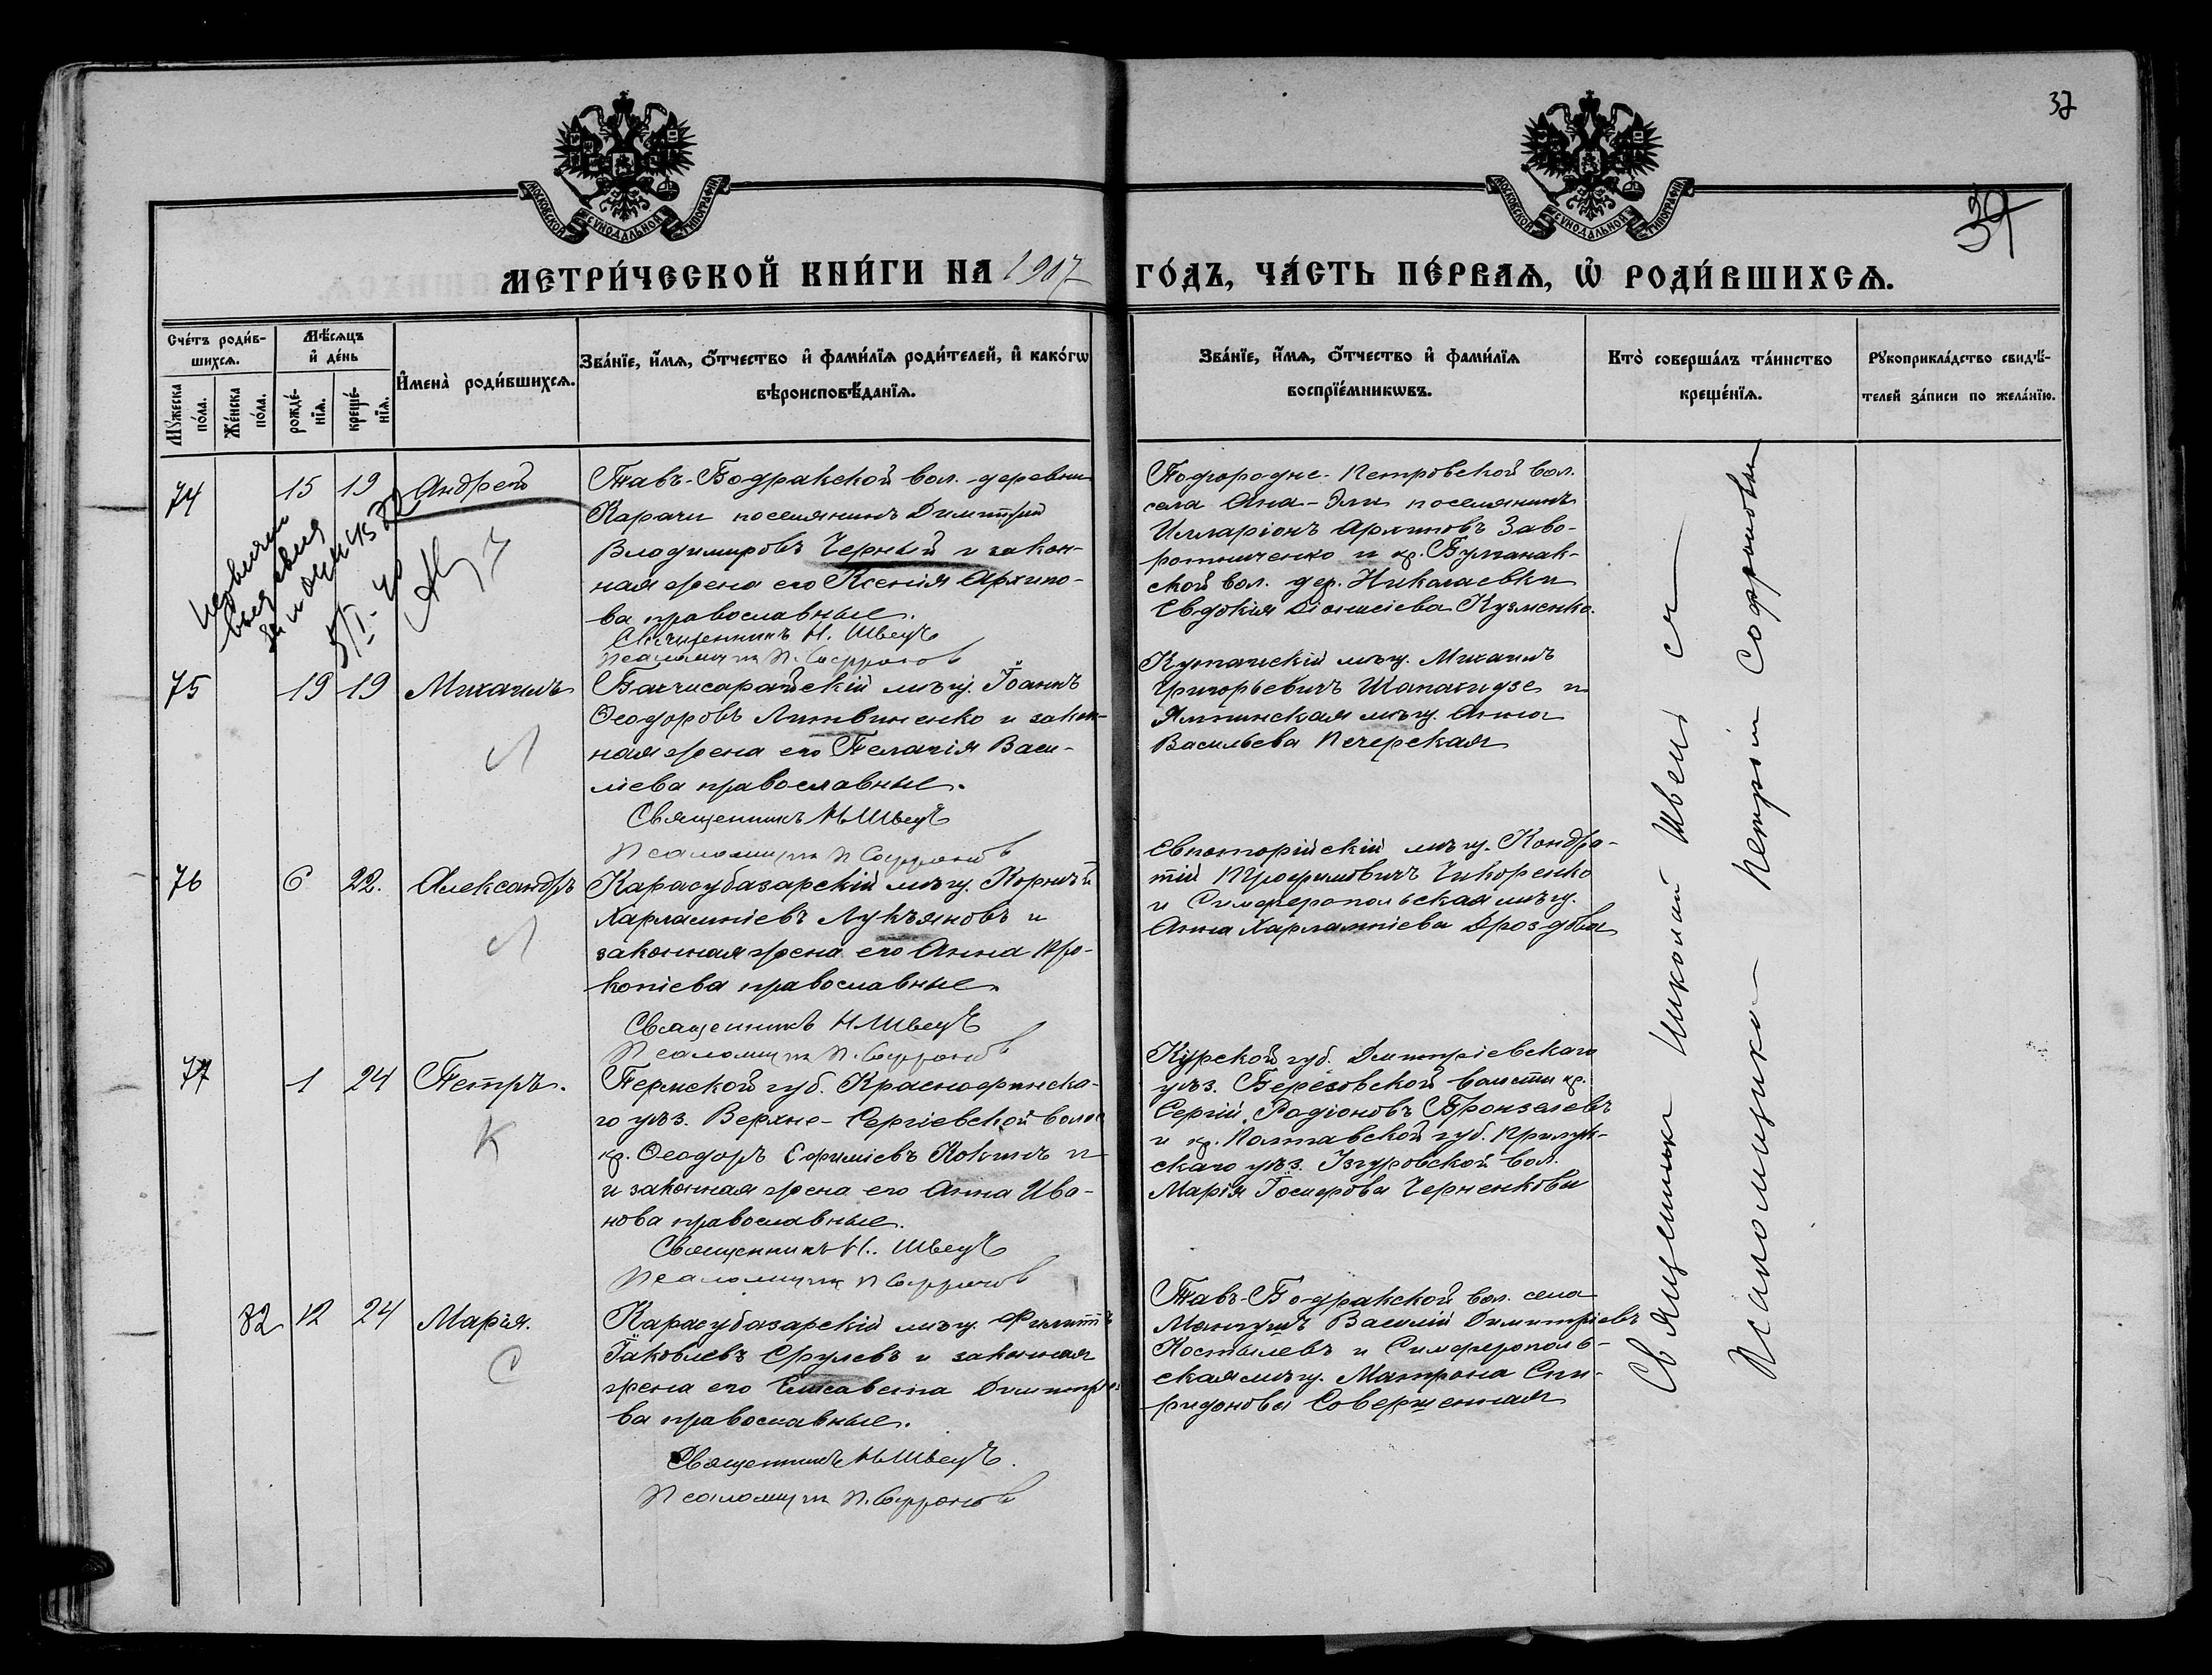 37
МОСКОВСКОЙ СѴНОДАЛЬНОЙ ТИПОГРАФІИ
МОСКОВСКОЙ СѴНОДАЛЬНОЙ ТИПОГРАФІИ
МЕТРИ́ЧЕСКОЙ КНИ́ГИ НА 1907
ГО́ДЪ, ЧА́СТЬ ПЕ́РВАѦ, Ѡ҆ РОДИ́ВШИХСѦ.
Сче́тъ роди́в-
шихсѧ.
Мѣ́сѧцъ
и҆ де́нь
Мꙋ́жеска
по́ла.
Же́нска
по́ла.
рожде́-
нїѧ.
креще́-
нїѧ.
И҆мена̀ роди́вшихсѧ.
Зва́нїе, и҆́мѧ, ѻ҆́тчество и҆ фами́лїѧ роди́телей, и҆ како́гѡ
вѣроисповѣ́данїѧ.
Зва́нїе, и҆́мѧ, ѻ҆́тчество и҆ фами́лїѧ
воспрїе́мникѡвъ.
Кто̀ соверша́лъ та́инство
креще́нїѧ.
Рꙋкоприкла́дство свидѣ́-
телей за́писи по жела́нїю.
74 15 19 Андрей
Тавъ-Бодракской вол. деревни
Карачи поселянинъ Димитрій
Владимировъ Черный и закон-
ная жена его Ксенія Архипо-
ва православные.
Священникъ Н. Швецъ
Псаломщикъ П. Софроновъ
Подгородне-Петровской вол.
села Ана-Эли поселянинъ
Илларіонъ Архиповъ Заво-
ротниченко и кр. Булганак-
ской вол. дер. Николаевки
Евдокія Діонисіева Кузменко.
75 19 19 Михаилъ
Бахчисарайскій мѣщ. Іоаннъ
Ѳеодоровъ Литвиненко и закон-
ная жена его Пелагія Васи-
ліева православные.
Священникъ Н. Швецъ
Псаломщикъ П. Софроновъ
Кутаискій мѣщ. Михаилъ
Григорьевичъ Шапакидзе и
Ялтинская мѣщ. Анна
Васильева Печерская
Л
76 6 22. Александръ
Карасубазарскій мѣщ. Корнѣй
Харлампіевъ Лукъяновъ и
законная жена его Анна Про-
копіева православные.
Священникъ Н. Швецъ
Псаломщикъ П. Софроновъ
Евпаторійскій мѣщ. Кондра-
тій Трофимовичъ Чихоренко
и Симферопольская мѣщ.
Анна Харлампіева Дроздова
Л
77 1 24 Петръ.
Пермской губ. Красноуфимска-
го уѣз. Верхне-Сергіевской волос
кр. Ѳеодоръ Ефиміевъ Кокинъ и
и законная жена его Анна Ива-
нова православные.
Священникъ Н. Швецъ
Псаломщикъ П. Софроновъ
Курской губ. Дмитріевскаго
уѣз. Березовской волости кр.
Сергій Родіоновъ Бронзелевъ
и кр. Полтавской губ. Прилук-
скаго уѣз. Згуровской вол.
Марія Іосифова Черненкова
К
82 12 24 Марія.
Карасубазарскій мѣщ. Филиппъ
Іаковлевъ Срулевъ и законная
жена его Елисавета Димитріе
ва православные.
Священникъ Н. Швецъ.
Псаломщикъ П. Софроновъ
Тавъ-Бодракской вол. села
Мангушъ Василій Димитріевъ
Костылевъ и Симферополь-
ская мѣщ. Матрона Спи-
ридонова Совершенная
С
Священникъ Николай Швецъ съ
Псаломщикомъ Петромъ Софроновымъ